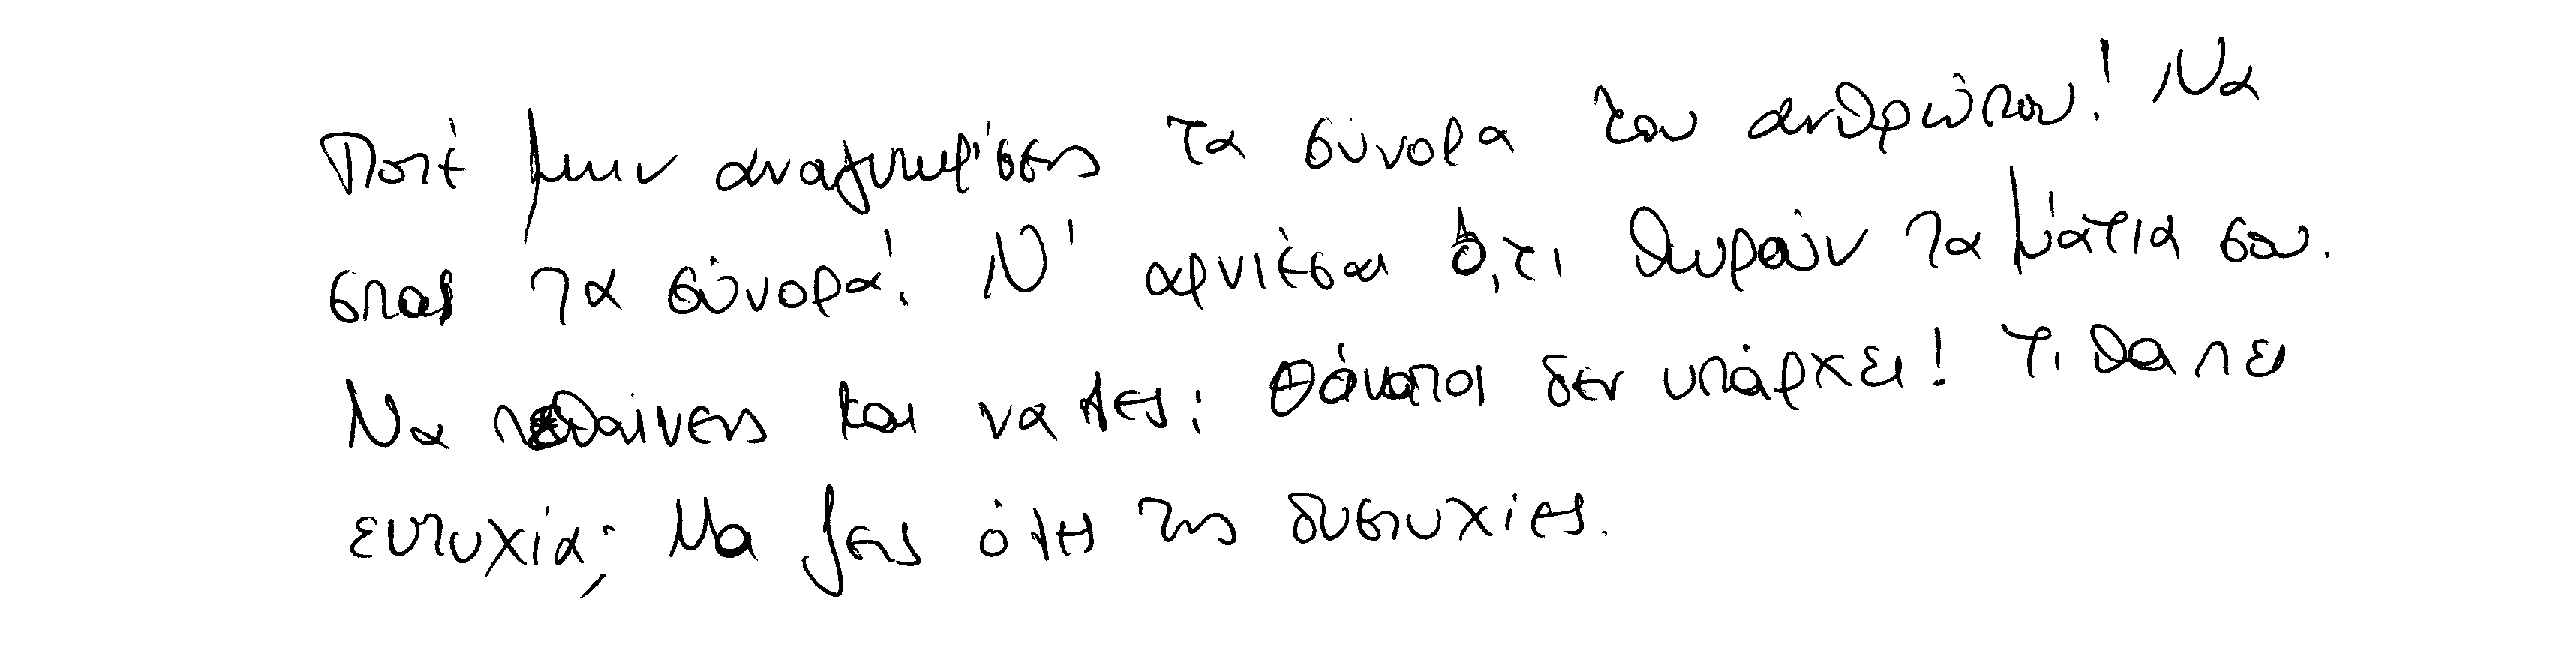 Ποτέ μην αναγνωρίσεις τα σύνορα του ανθρώπου! Να
σπας τα σύνορα! Ν' αρνιέσαι ό,τι θωρούν τα μάτια σου.
Να πεθαίνεις και να λες: Θάνατος δεν υπάρχει! Τι θα πει
ευτυχία; Να ζεις όλες τις δυστυχίες.